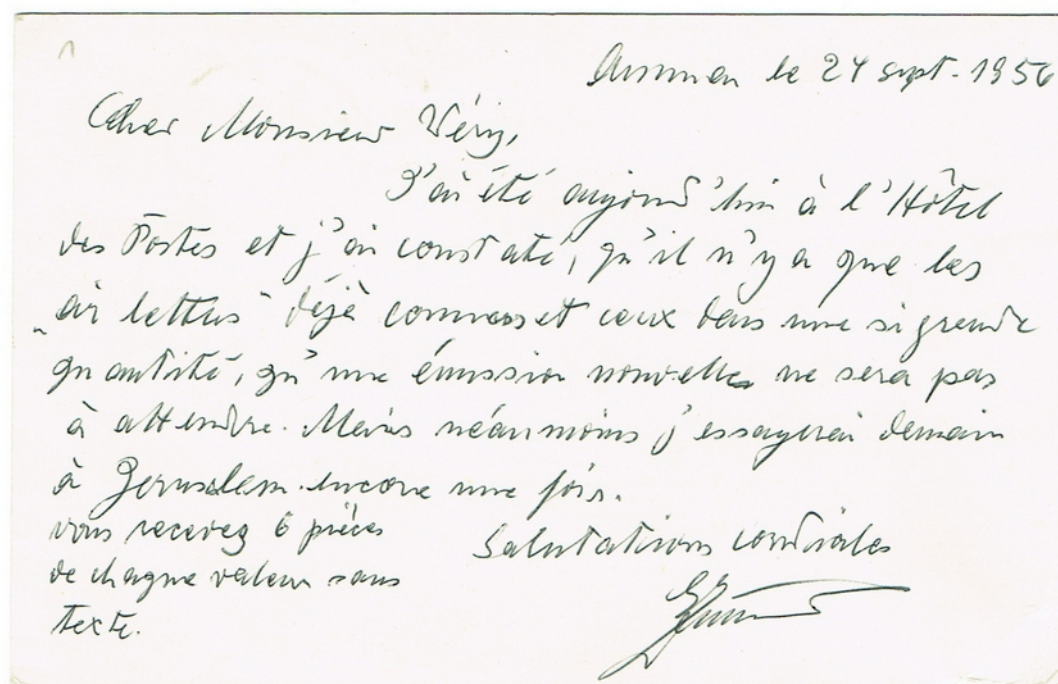 Amman le 24 sept. 1956
Cher Monsieur Véry,
J'ai été aujourd'hui à l'Hôtel
des Postes et j'ai constaté, qu'il n'y a que les
"air letters" déjà connus et ceux dans une si grande
quantité, qu'une émission nouvelle ne sera pas
à attendre. Mais néanmoins j'essayerai demain
à Jerusalem encore une fois.
vous recevez 6 pièces
de chaque valeur sans
texte.
Salutations cordiales